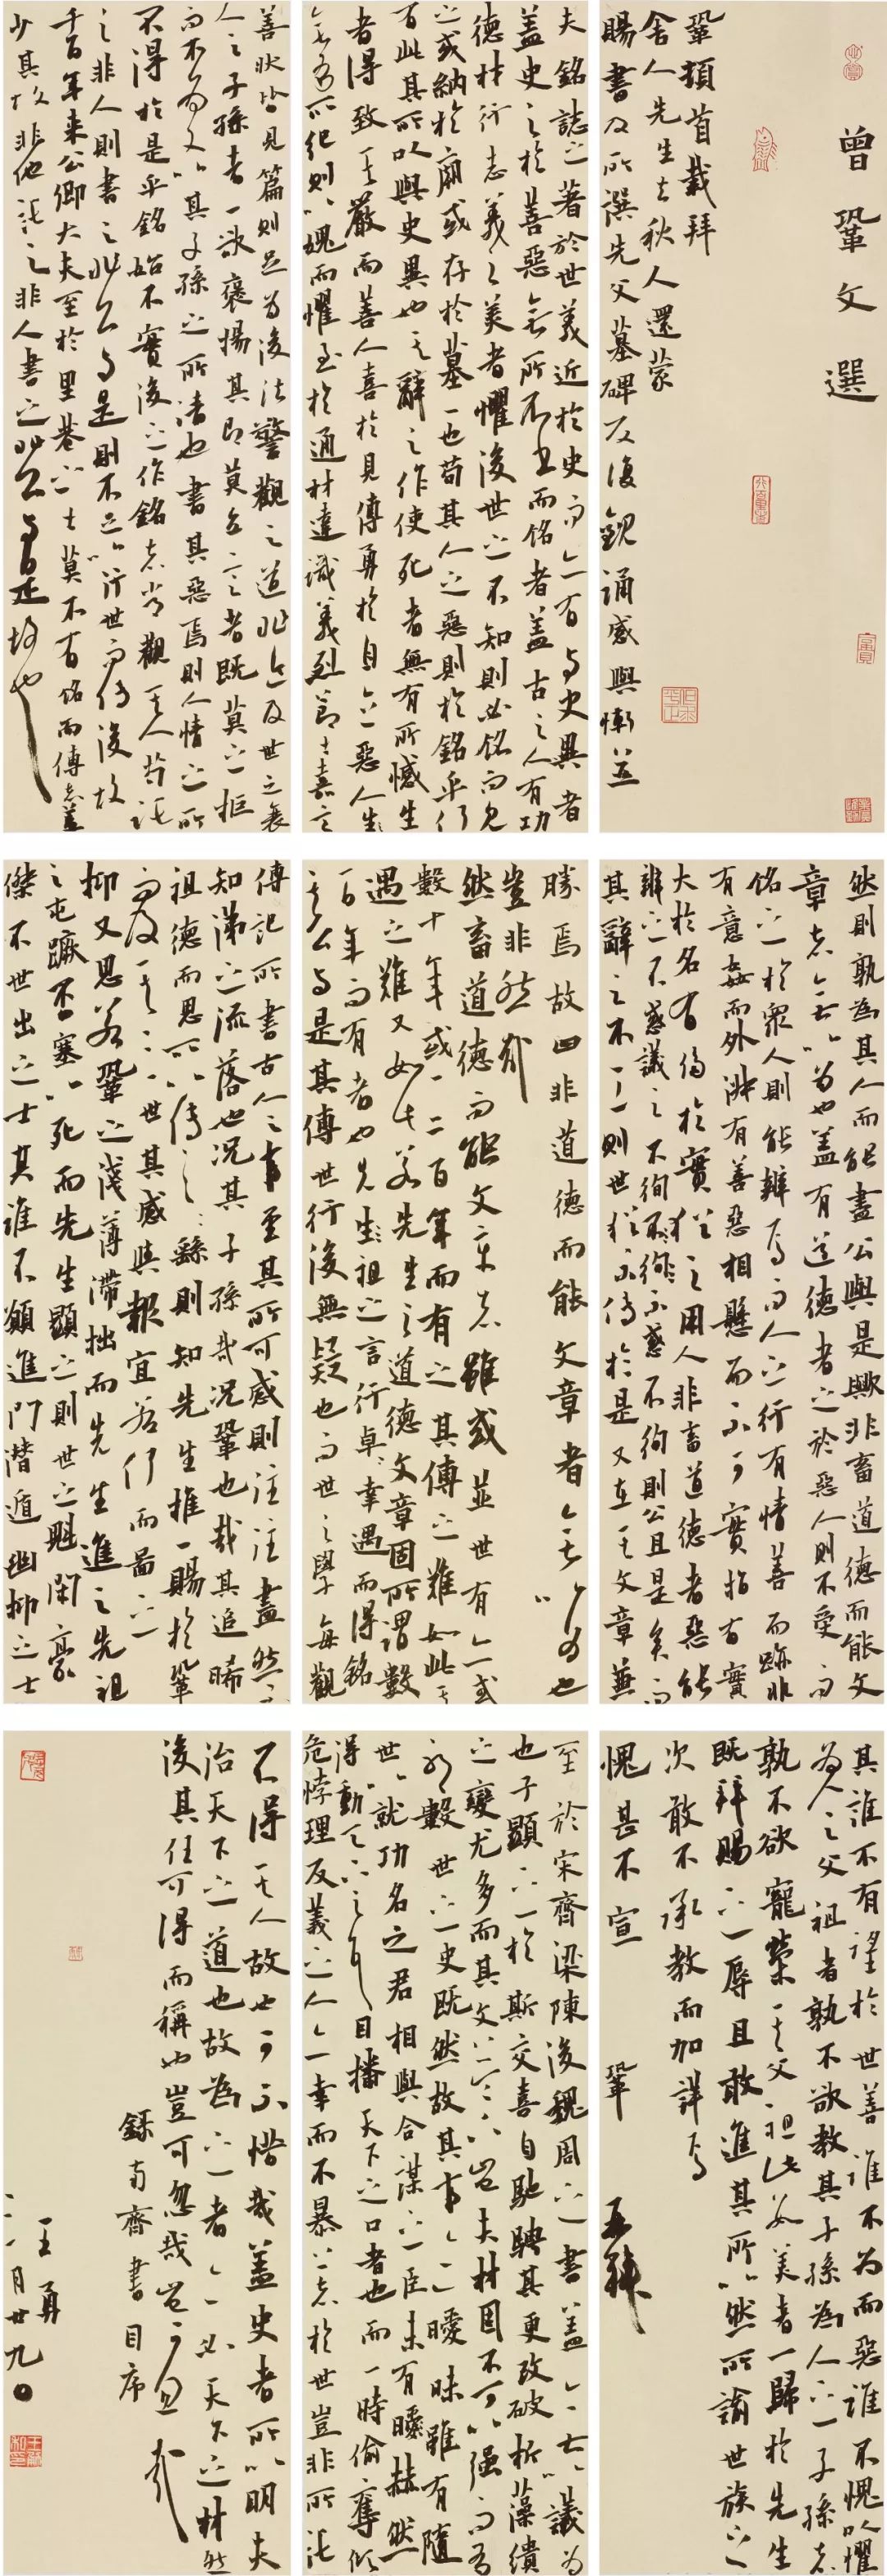 曾鞏文選
鞏頓首載拜
舍人先生去秋人還蒙
賜書及所譔先父墓碑反復觀誦感與慚並
夫銘誌之著於世義近於史而亦有與史異者
蓋史之於善惡無所不書而銘者蓋古之人有功
德材行志義之美者懼後世之不知則必銘而見
之或納於廟或存於墓一也苟其人之惡則於銘乎何
有此其所以與史異也其辭之作使死者無有所憾生
者得致其嚴而善人喜於見傳勇於自立惡人生
無有所紀則以愧而懼至於通材達識義烈節士嘉言
善狀皆見篇則足為後法警觀之道非近及世之衰
人之子孫者一欲褒揚其即莫立言者既莫之拒
而不為又以其子孫之所請也書其惡焉則人情之所
不得於是乎銘始不實後之作銘者當觀其人苟託
之非人則書之非公與是則不足以行世而傳後故
千百年來公卿大夫至於里巷之士莫不有銘而傳者蓋
少其故非他託之非人書之非公與是故也
然則孰為其人而能盡公與是歟非畜道德而能文
章者無以為也蓋有道德者之於惡人則不受而
銘之於眾人則能辨焉而人之行有情善而跡非
有意姦而外淑有善惡相懸而不可實指有實
大於名有侈於實猶之用人非畜道德者惡能
辨之不惑議之不徇不惑不徇則公且是矣而
其辭之不工則世猶不傳於是又在其文章兼
勝焉故曰非道德而能文章者無以為也
豈非然哉
然畜道德而能文章者雖或並世有亦或
數十年或一二百年而有之其傳之難如此其
遇之難又如此若先生之道德文章固所謂數
百年而有者也先生祖之言行卓卓幸遇而得銘
其公與是其傳世行後無疑也而世之學每觀
傳記所書古人之事至其所可感則往往盡然不
知涕之流落也況其子孫哉況鞏也哉其追晞
祖德而思所以傳之之繇則知先生推一賜於鞏
而及其三世其感與報宜若何而圖之
抑又思若鞏之淺薄滯拙而先生進之先祖
之屯蹶否塞以死而先生顯之則世之魁閎豪
傑不世出之士其誰不願進門潛遁幽抑之士
其誰不有望於世善誰不為而惡誰不愧以懼
為人之父祖者孰不欲教其子孫為人之子孫者
孰不欲寵榮其父祖此數美者一歸於先生
既拜賜之辱且敢進其所以然所諭世族之
次敢不承教而加詳焉
愧甚不宣 鞏再拜
至於宋齊梁陳後魏周之書蓋無以議為
也子顯之於斯文喜自馳騁其更改破析藻繢
之變尤多而其文益下豈夫材固不可以強而有
邪數世之史既然故其事迹曖昧雖有隨
世以就功名之君相與合謀之臣未有赫然
得傾動天下之耳目播天下之口者也而一時偷奪傾
危悖理反義之人亦幸而不暴著於世豈非所託
不得其人故也可不惜哉蓋史者所以明夫
治天下之道也故為之者亦必天下之材然
後其任可得而稱也豈可忽哉豈可忽哉
錄南齊書目序
王勇
二〇一月廿九日